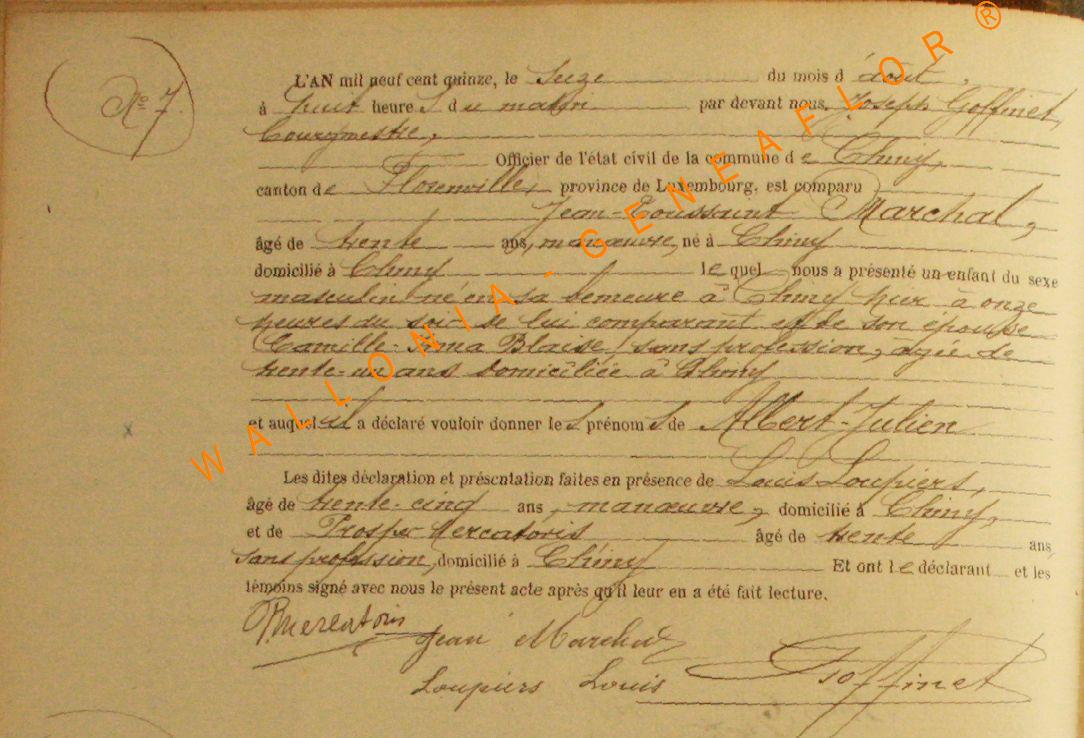 Nº 7
L'AN mil neuf cent quinze, le Seize du mois d'août,
à huit heure s du matin par devant nous, Joseph Goffinet,
bourgmestre,
Officier de l'état civil de la commune de Chiny,
canton de Florenville, province de Luxembourg, est comparu
Jean-Toussaint Marchal,
âgé de trente ans, manœuvre, né à Chiny
domicilié à Chiny lequel nous a présenté un enfant du sexe
masculin né en sa demeure à Chiny hier à onze
heures du soir de lui comparant et de son épouse
Camille-Irma Blaise, sans profession, âgée de
trente-un ans domiciliée à Chiny
et auquel il a déclaré vouloir donner les prénoms de Albert-Julien
Les dites déclaration et présentation faites en présence de Louis Loupiers,
âgé de trente-cinq ans, manœuvre, domicilié à Chiny,
et de Prosper Mercatoris âgé de trente ans,
sans profession, domicilié à Chiny Et ont le déclarant et les
témoins signé avec nous le présent acte après qu'il leur en a été fait lecture.
PMercatoris
Jean Marchal
Goffinet
Loupiers Louis
WALLONIA-GENEAFLOR ®